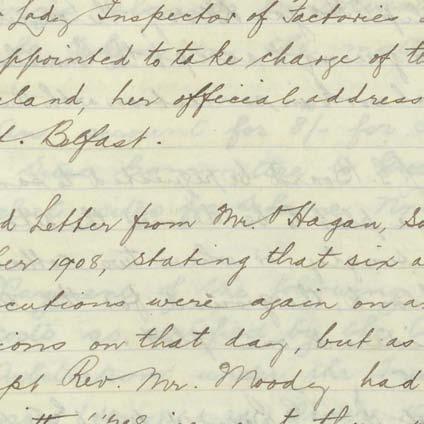 Lady Inspector of Factories
appointed to take charge of
eland, her official address
t. Belfast.
d Letter from Mr. O'Hagan, So
ber 1908, stating that six a
cutions were again on a
ions on that day, but as
pt Rev. Mr. Moody had